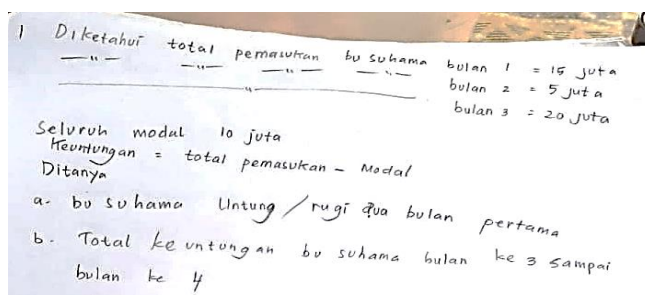 1 Diketahui total pemasukan bu suhama bulan 1 = 15 juta
—"— —"— —"— —"— bulan 2 = 5 juta
—"— bulan 3 = 20 juta
Seluruh modal 10 juta
Keuntungan = total pemasukan - Modal
Ditanya
a. bu suhama Untung / rugi dua bulan pertama
b. Total keuntungan bu suhama bulan ke 3 sampai
bulan ke 4